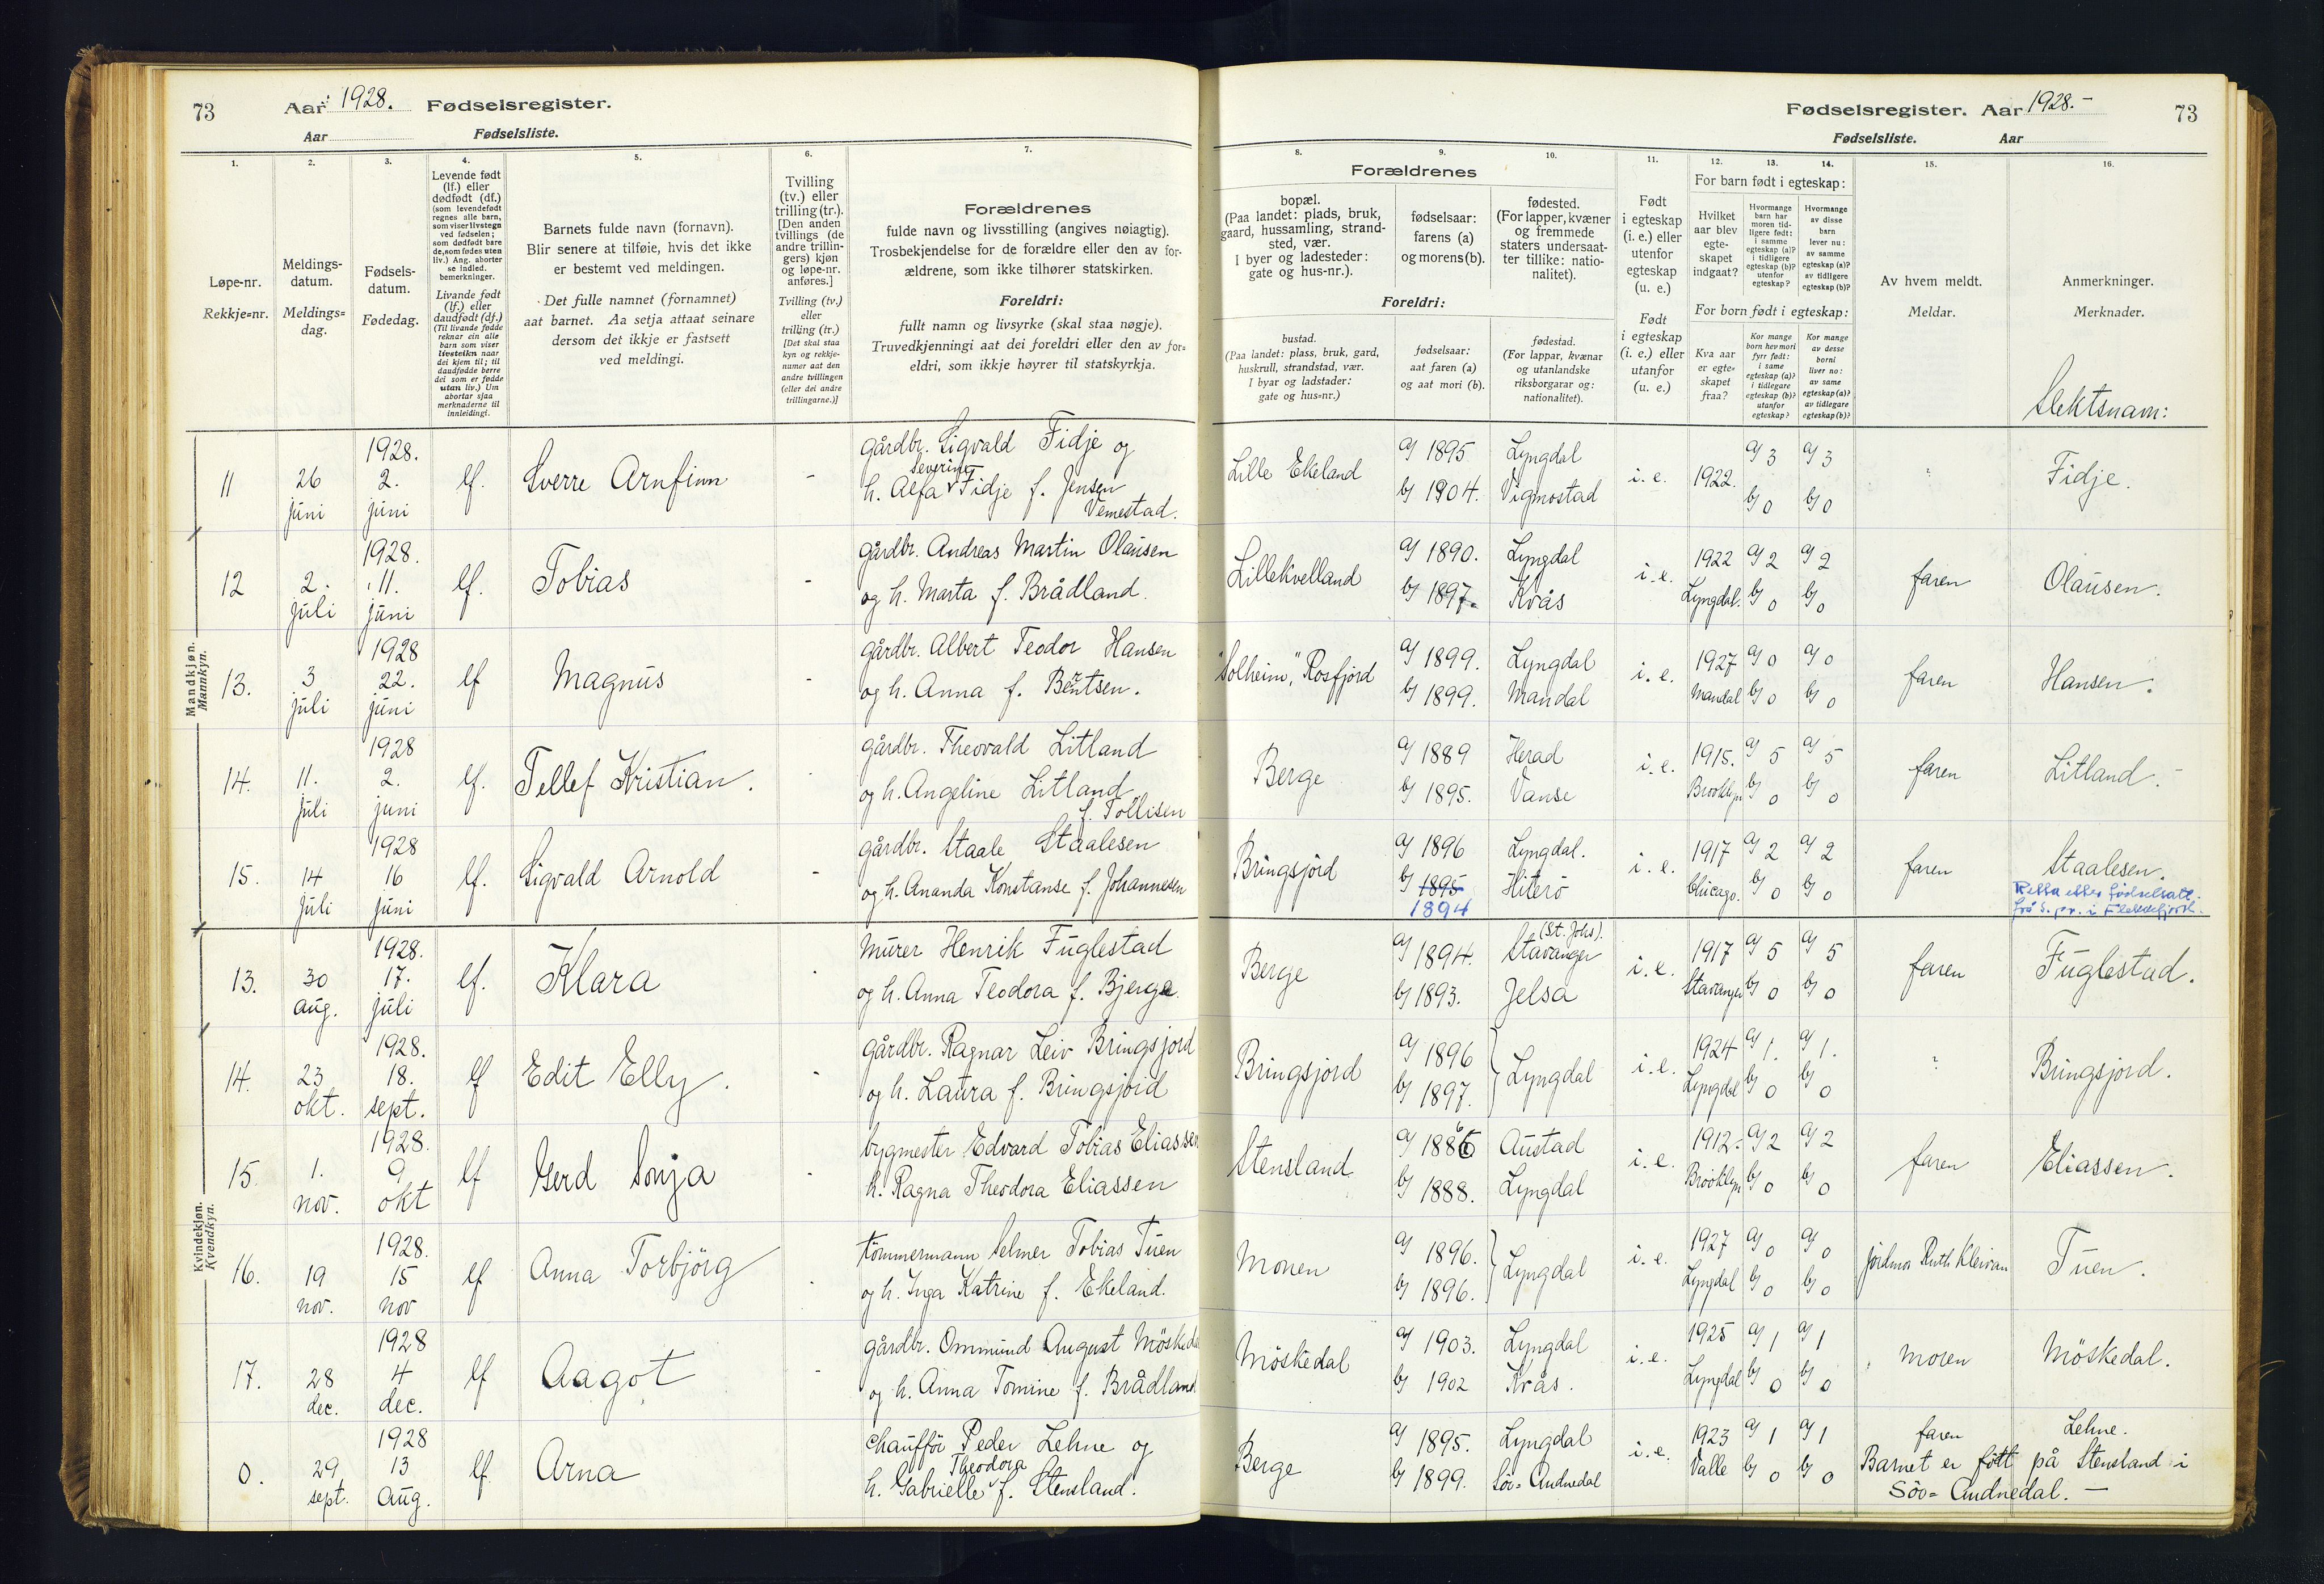 73 Aar 1928. Fødselsregister.
Aar Fødselsliste.
1.
Løpe-nr.
Rekkje=nr.
2.
Meldings-
datum.
Meldings=
dag.
3.
Fødsels-
datum.
Fødedag.
4.
Levende født
(lf.) eller
dødfødt (df.)
(som levendefødt
regnes alle barn,
som viser livstegn
ved fødselen;
som dødfødt bare
de, som fødes uten
liv.) Ang. aborter
se indled.
bemerkninger.
Livande født
(lf.) eller
daudfødt (df.)
(Til livande fødde
reknar ein alle
barn som viser
livsteikn naar
dei kjem til; til
daudfødde berre
dei som er fødde
utan liv.) Um
abortar sjaa
merknaderne til
innleidingi.
5.
Barnets fulde navn (fornavn).
Blir senere at tilføie, hvis det ikke
er bestemt ved meldingen.
Det fulle namnet (fornamnet)
aat barnet. Aa setja attaat seinare
dersom det ikkje er fastsett
ved meldingi.
6.
Tvilling
(tv.) eller
trilling (tr.).
[Den anden
tvillings (de
andre trillin-
gers) kjøn
og løpe-nr.
anføres.]
Tvilling (tv.)
eller
trilling (tr.)
[Det skal staa
kyn og rekkje-
numer aat den
andre tvillingen
(eller dei andre
trillingarne.)]
7.
Forældrenes
fulde navn og livsstilling (angives nøiagtig).
Trosbekjendelse for de forældre eller den av for-
ældrene, som ikke tilhører statskirken.
Foreldri:
fullt namn og livsyrke (skal staa nøgje).
Truvedkjenningi aat dei foreldri eller den av for=
eldri, som ikkje høyrer til statskyrkja.
Mandkjøn.
Mannkyn.
11 26 juni 1928. 2. juni lf. Sverre Arnfinn -
gårdbr. Sigvald Fidje og
Severine
h. Alfa v Fidje f. Jensen
Vemestad.
12 2. juli 1928. 11. juni lf. Tobias -
gårdbr. Andreas Martin Olausen
og h. Marta f. Brådland.
13. 3 juli 1928 22. juni lf Magnus -
gårdbr. Albert Teodor Hansen
og h. Anna f. Berntsen.
14. 11. juli 1928 2. juni lf. Tellef Kristian. -
gårdbr. Theovald Litland
og h. Angeline Litland
f. Tollisen
15. 14 juli 1928 16 juni lf. Sigvald Arnold -
gårdbr. Staale Staalesen
og h. Ananda Konstanse f. Johannesen
Kvindekjøn.
Kvendkyn.
13. 30 aug. 1928. 17. juli lf. Klara -
murer Henrik Fuglestad
og h. Anna Teodora f. Bjerga.
14. 23 okt. 1928. 18. sept. lf Edit Elly. -
gårdbr. Ragnar Leiv Bringsjord
og h. Laura f. Bringsjord
15. 1. nov. 1928. 9 okt lf Gerd Sonja -
bygmester Edvard Tobias Eliassen
h. Ragna Theodora Eliassen
16. 19 nov. 1928. 15 nov lf Anna Torbjörg -
tömmermann Selmer Tobias Tuen
og h. Inga Katrine f. Ekeland.
17. 28 dec. 1928 4 dec. lf Aagot -
gårdbr. Ommund August Möskedal
og h. Anna Tomine f. Brådland
0. 29 sept. 1928 13 aug. lf. Arna
chaufför Peder Lehne og
Theodora
h. Gabrielle v f. Stensland.
Fødselsregister. Aar 1928.- 73
Fødselsliste. Aar
8.
9.
10.
Forældrenes
bopæl.
(Paa landet: plads, bruk,
gaard, hussamling, strand-
sted, vær.
I byer og ladesteder:
gate og hus-nr.).
fødselsaar:
farens (a)
og morens (b).
fødested.
(For lapper, kvæner
og fremmede
staters undersaat-
ter tillike: natio-
nalitet).
Foreldri:
bustad.
(Paa landet: plass, bruk, gard,
huskrull, strandstad, vær.
I byar og ladstader:
gate og hus=nr.)
fødselsaar:
aat faren (a)
og aat mori (b).
fødestad.
(For lappar, kvænar
og utanlandske
riksborgarar og:
nationalitet).
11.
Født
i egteskap
(i. e.) eller
utenfor
egteskap
(u. e.)
Født
i egteskap
(i. e.) eller
utanfor
(u. e.)
12.
13.
14.
For barn født i egteskap:
Hvilket
aar blev
egte-
skapet
indgaat?
Hvormange
barn har
moren tid-
ligere født:
i samme
egteskap (a)?
i tidligere
egteskap (b)?
utenfor
egteskap?
Hvormange
av disse
barn
lever nu:
av samme
egteskap (a)?
av tidligere
egteskap (b)?
For born født i egteskap:
Kva aar
er egte-
skapet
fraa?
Kor mange
born hev mori
fyrr født:
i same
egteskap (a)?
i tidlegare
egteskap (b)?
utanfor
egteskap?
Kor mange
av desse
borni
liver no:
av same
egteskap (a)?
av tidlegare
egteskap (b)?
15.
Av hvem meldt.
Meldar.
16.
Anmerkninger.
Merknader.
Slektsnavn:
Lille Ekeland a) 1895 Lyngdal i. e. 1922. a) 3 a) 3 ? Fidje.
b) 1904. Vigmostad b) 0 b) 0
Lillekvelland a) 1890. Lyngdal i. e. 1922 a) 2 a) 2 faren Olausen.
b) 1897. Kvås Lyngdal. b) 0 b) 0
"Solheim", Rosfjord a) 1899. Lyngdal i. e. 1927 a) 0 a) 0 faren Hansen.
b) 1899. Mandal Mandal b) 0 b) 0
Berge a) 1889 Herad i. e. 1915. a) 5 a) 5 faren Litland.
b) 1895. Vanse Brooklyn b) 0 b) 0
Bringsjord a) 1896 Lyngdal. i. e. 1917 a) 2 a) 2 faren Staalesen.
b) 1895 Hiterö Chicago. b) 0 b) 0
1894
Retta etter fødselsatt.
frå s. pr. i Flekkefjord.
(St. Johs).
Berge a) 1894. Stavanger i. e. 1917 a) 5 a) 5 faren Fuglestad.
b) 1893. Jelsa Stavanger b) 0 b) 0
Bringsjord a) 1896 } Lyngdal i. e. 1924 a) 1. a) 1. ? Bringsjord.
b) 1897. Lyngdal b) 0 b) 0
Stensland a) 1886 Austad i. e. 1912. a) 2 a) 2 faren Eliassen.
b) 1888. Lyngdal Brooklyn b) 0 b) 0
Monen a) 1896. } Lyngdal i. e. 1927 a) 0 a) 0 jordmor Ruth Kleivan Tuen.
b) 1896. Lyngdal b) 0 b) 0
Möskedal a) 1903. Lyngdal i. e. 1925 a) 1 a) 1 moren Möskedal.
b) 1902 Kvås. Lyngdal b) 0 b) 0
Berge a) 1895. Lyngdal i. e. 1923 a) 1 a) 1 faren Lehne.
b) 1899. Sör-Audnedal Valle b) 0 b) 0
Barnet er fött på Stensland i
Sör-Audnedal. -